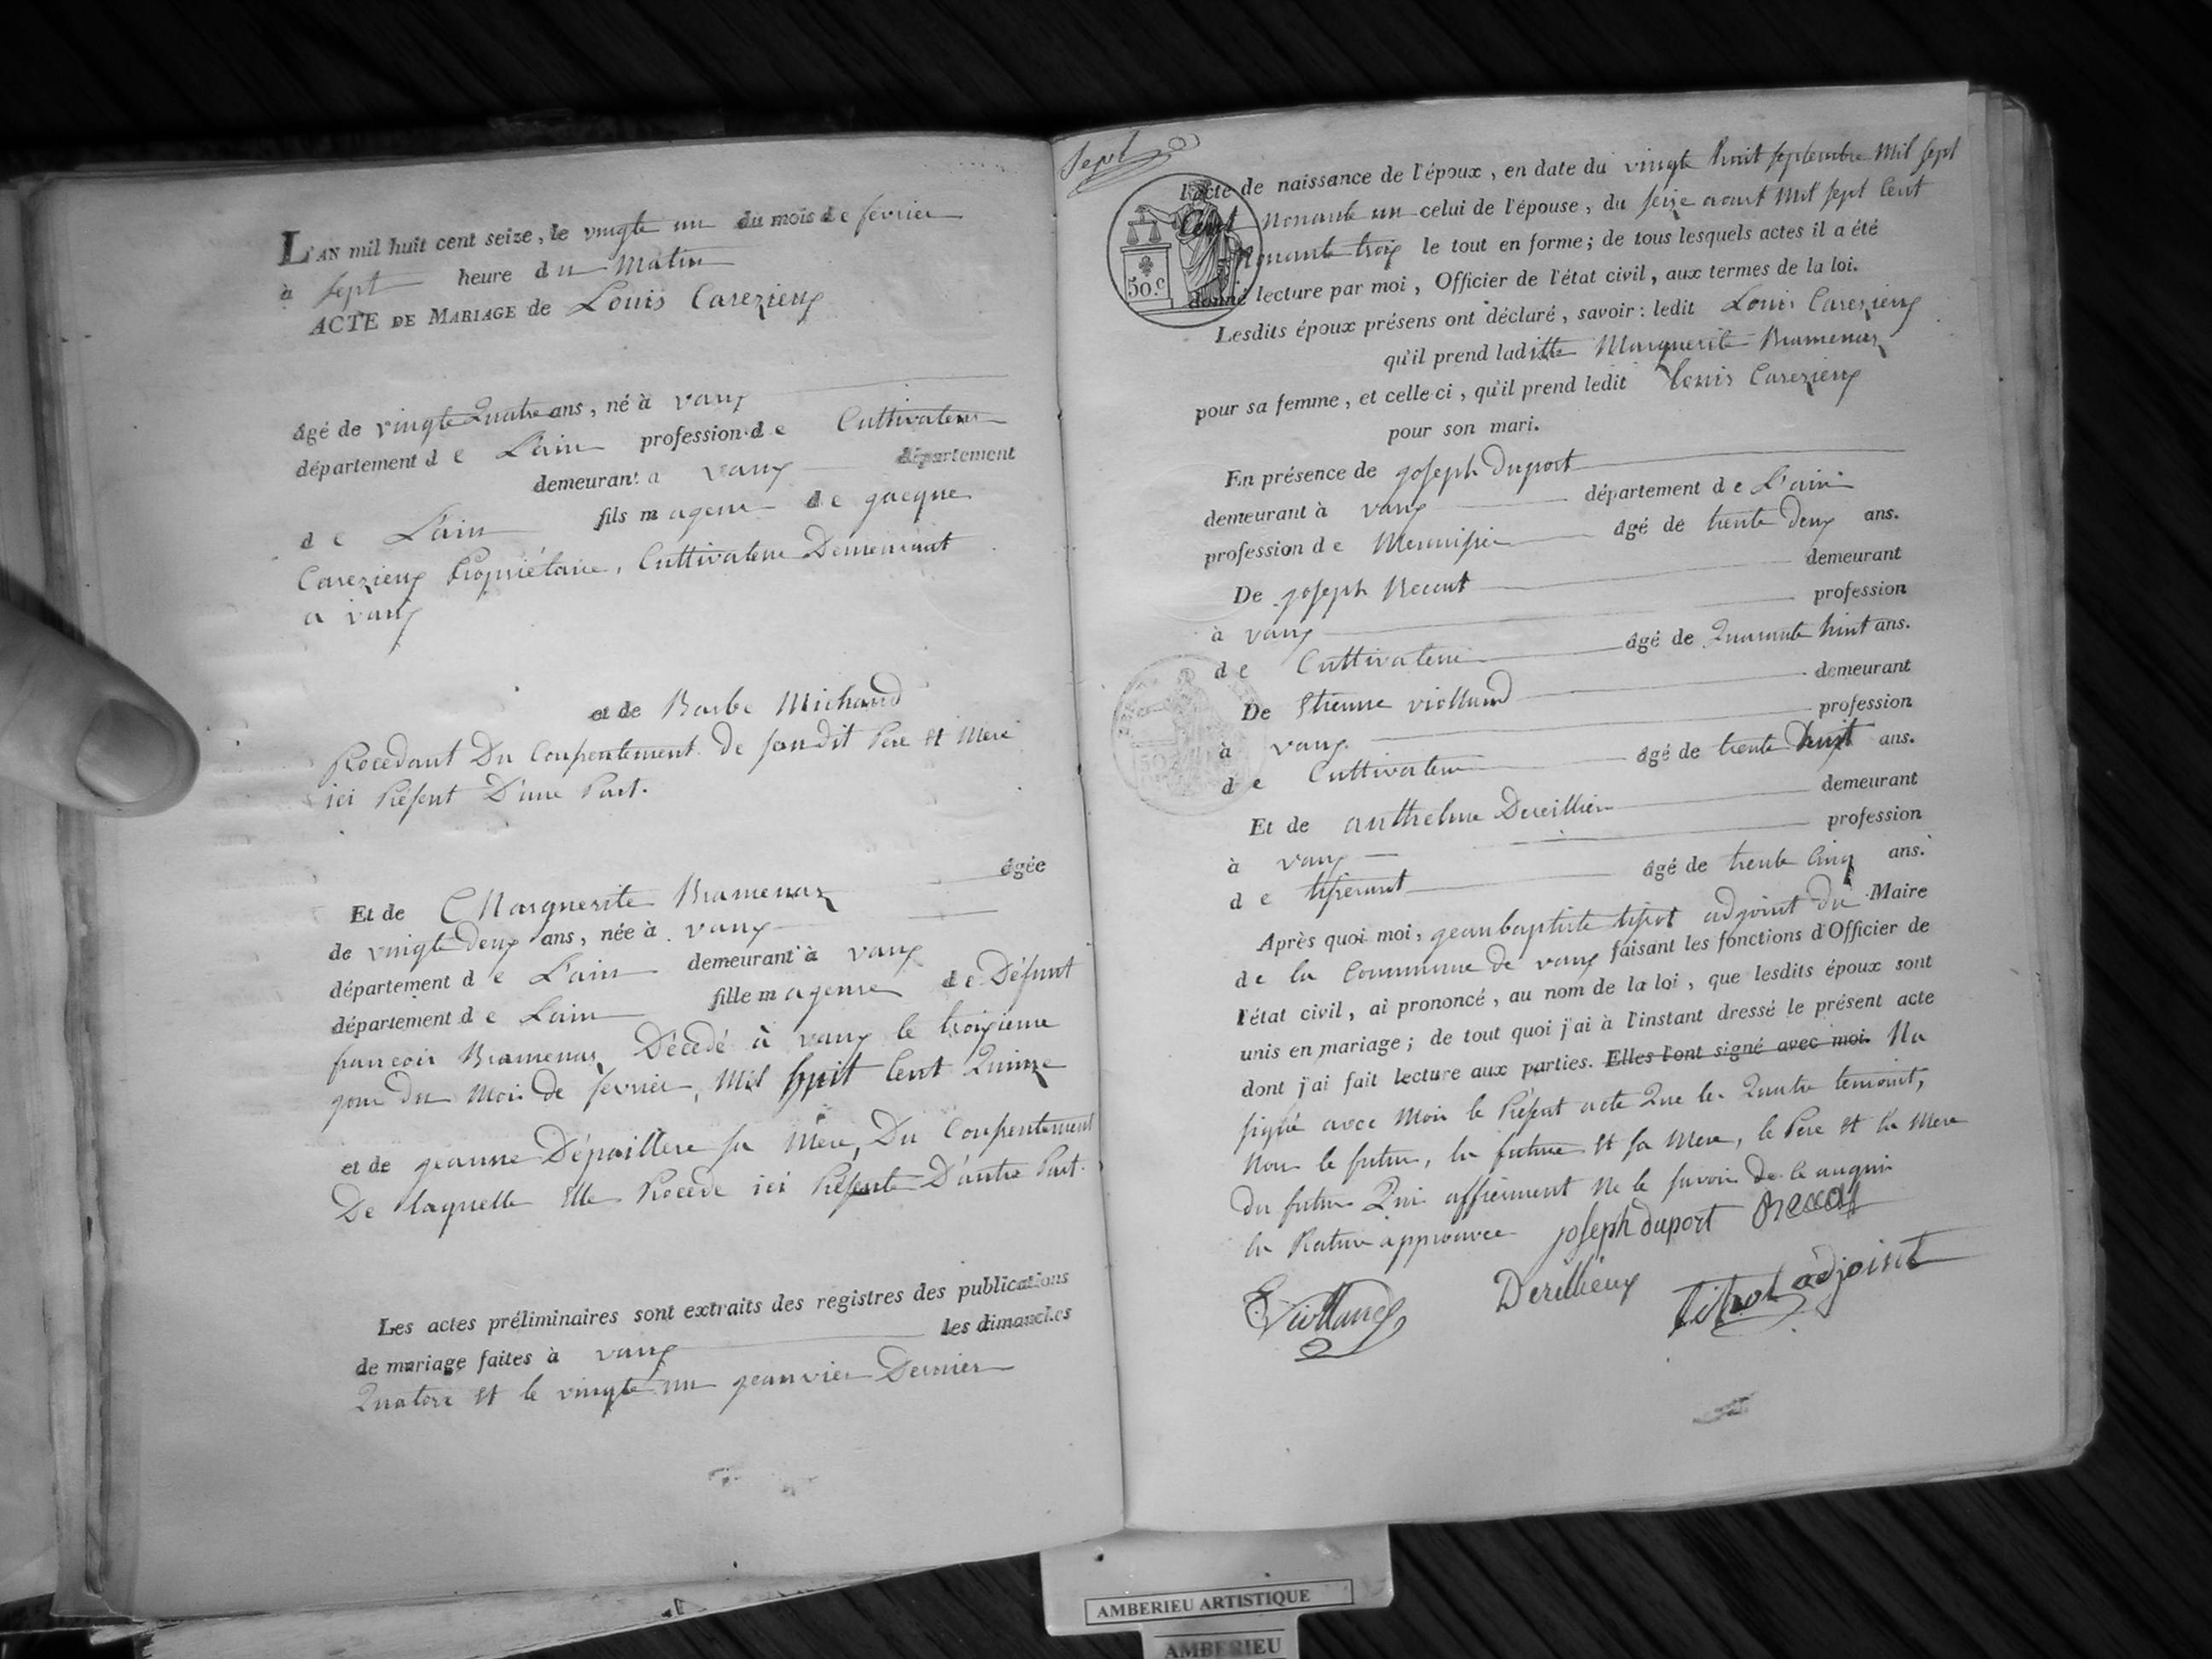 L'AN mil huit cent seize, le vingte un du mois de fevrier
à sept heure du Matin
ACTE DE MARIAGE de Louis Carezieux
âgé de vingte Quatre ans, né à vaux
département de L'ain profession de Cultivateur
demeurant a vaux département
de L'ain fils mageur de jacque
Carezieux Propriétaire, Cultivateur Demeurant
a vaux
et de Barbe Michaud
Procedant Du Consentement de son dit Pere et Mere
ici Présent D'une Part.
Et de Marguerite Bramenas âgée
de vingte deux ans, née à vaux
département de L'ain demeurant à vaux
département de L'ain fille mageure de Défunt
francois Bramenas Décédé à vaux le troisieme
jour du Mois de fevrier, Mil huit Cent Quinze
et de jeanne Dépaillere sa Mere, Du Consentement
De laquelle Elle Procede ici Présente D'autre Part.
Les actes préliminaires sont extraits des registres des publications
de mariage faites à vaux les dimanches
Quatorze et le vingte un jeanvier Dernier
sept
l'acte de naissance de l'époux, en date du vingte huit septembre Mil sept
Cent Nonante un celui de l'épouse, du seize aout Mil sept Cent
Nonante trois le tout en forme; de tous lesquels actes il a été
50.c
donné lecture par moi, Officier de l'état civil, aux termes de la loi.
Lesdits époux présens ont déclaré, savoir: ledit Louis Carezieux
qu'il prend laditte Marguerite Bramenas
pour sa femme, et celle-ci, qu'il prend ledit Louis Carezieux
pour son mari.
En présence de joseph Duport
demeurant à vaux département de L'ain
profession de Menuisier âgé de trente Deux ans.
De joseph Recout demeurant
à vaux profession
de Cultivateur âgé de Quarante huit ans.
De Etienne violland demeurant
à vaux profession
de Cultivateur âgé de trente huit ans.
Et de anthelme Dereillier demeurant
à vaux profession
de tiserant âgé de trente Cinq ans.
Après quoi moi, jean baptiste tissot adjoint du Maire
de la Commune de vaux faisant les fonctions d'Officier de
l'état civil, ai prononcé, au nom de la loi, que lesdits époux sont
unis en mariage; de tout quoi j'ai à l'instant dressé le présent acte
dont j'ai fait lecture aux parties. Elles l'ont signé avec moi. Na
signé avec Moi le Présent acte Que les Quatre temoint,
Non le futur, la future et sa Mere, le Pere et la Mere
du futur Qui affirment Ne le savoir de ce anquis
la Rature approuvee joseph duport
E. Violland Derellieux tissot adjoint
AMBERIEU ARTISTIQUE
AMBERIEU